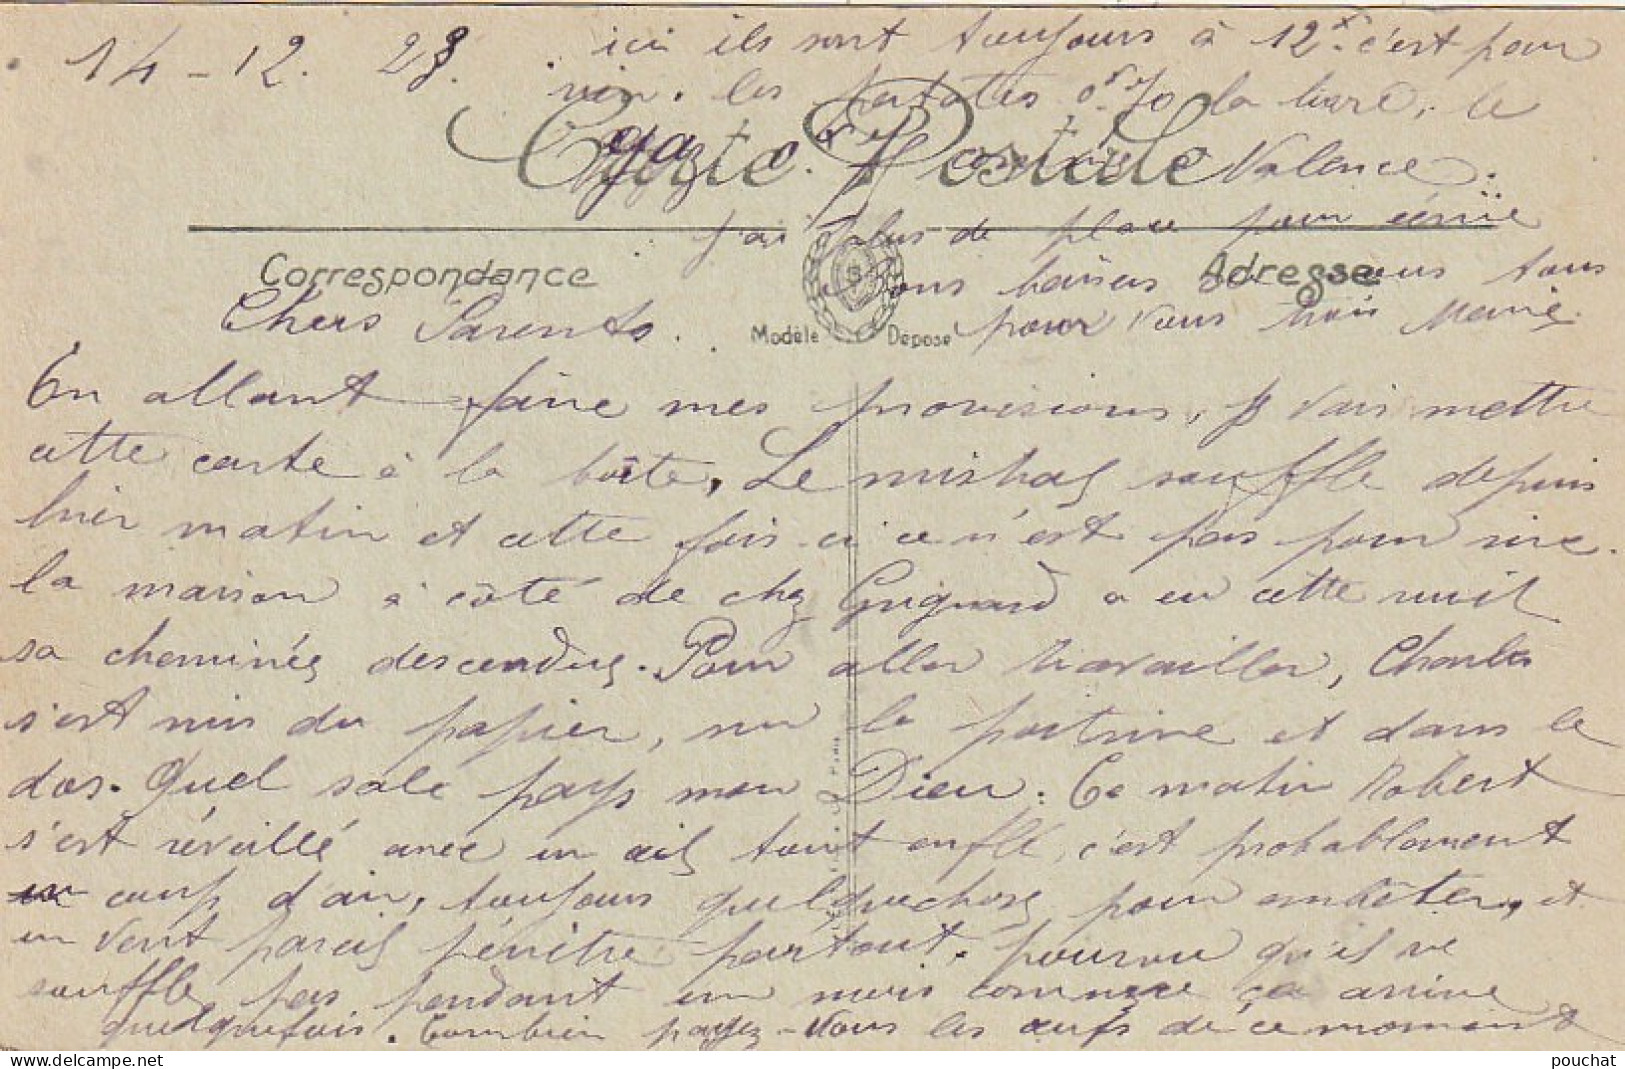 14-12. 23.
Carte Postale
Correspondance
Adresse
Modèle Déposé
Chers Parents.
En allant faire mes provisions, je vais mettre
cette carte à la boîte. Le mistral souffle depuis
hier matin et cette fois-ci ce n'est pas pour rire.
la maison à côté de chez Grignard a eu cette nuit
sa cheminée descendue. Pour aller travailler, Charles
s'est mis du papier, sur la poitrine et dans le
dos. Quel sale pays mon Dieu. Ce matin Robert
s'est réveillé avec un œil tout enflé, c'est probablement
un coup d'air, toujours quelque chose pour embêter, et
un vent pareil pénètre partout. pourvu qu'il ne
souffle pas pendant un mois comme ça arrive
quelquefois. Combien payez-vous les œufs dè ce moment
ici ils sont toujours à 12f. c'est pour
rien. les patates 0f70 la livre, le
gaz Valence.
j'ai plus de place pour écrire
bons baisers à vous tous
pour vous trois Marie
pouchat